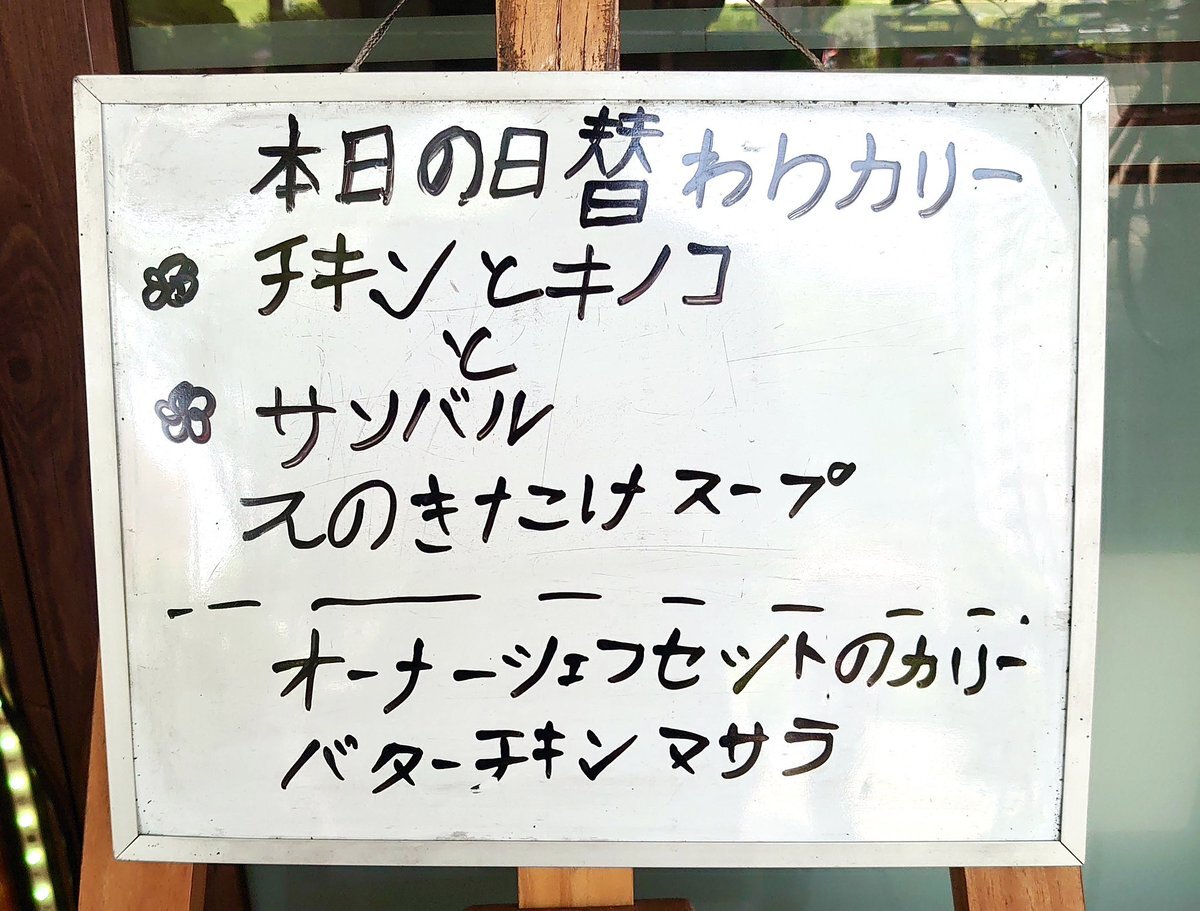 本日の日替わりカリー
チキンとキノコ
と
サンバル
えのきたけスープ
オーナーシェフセットのカリー
バターチキンマサラ